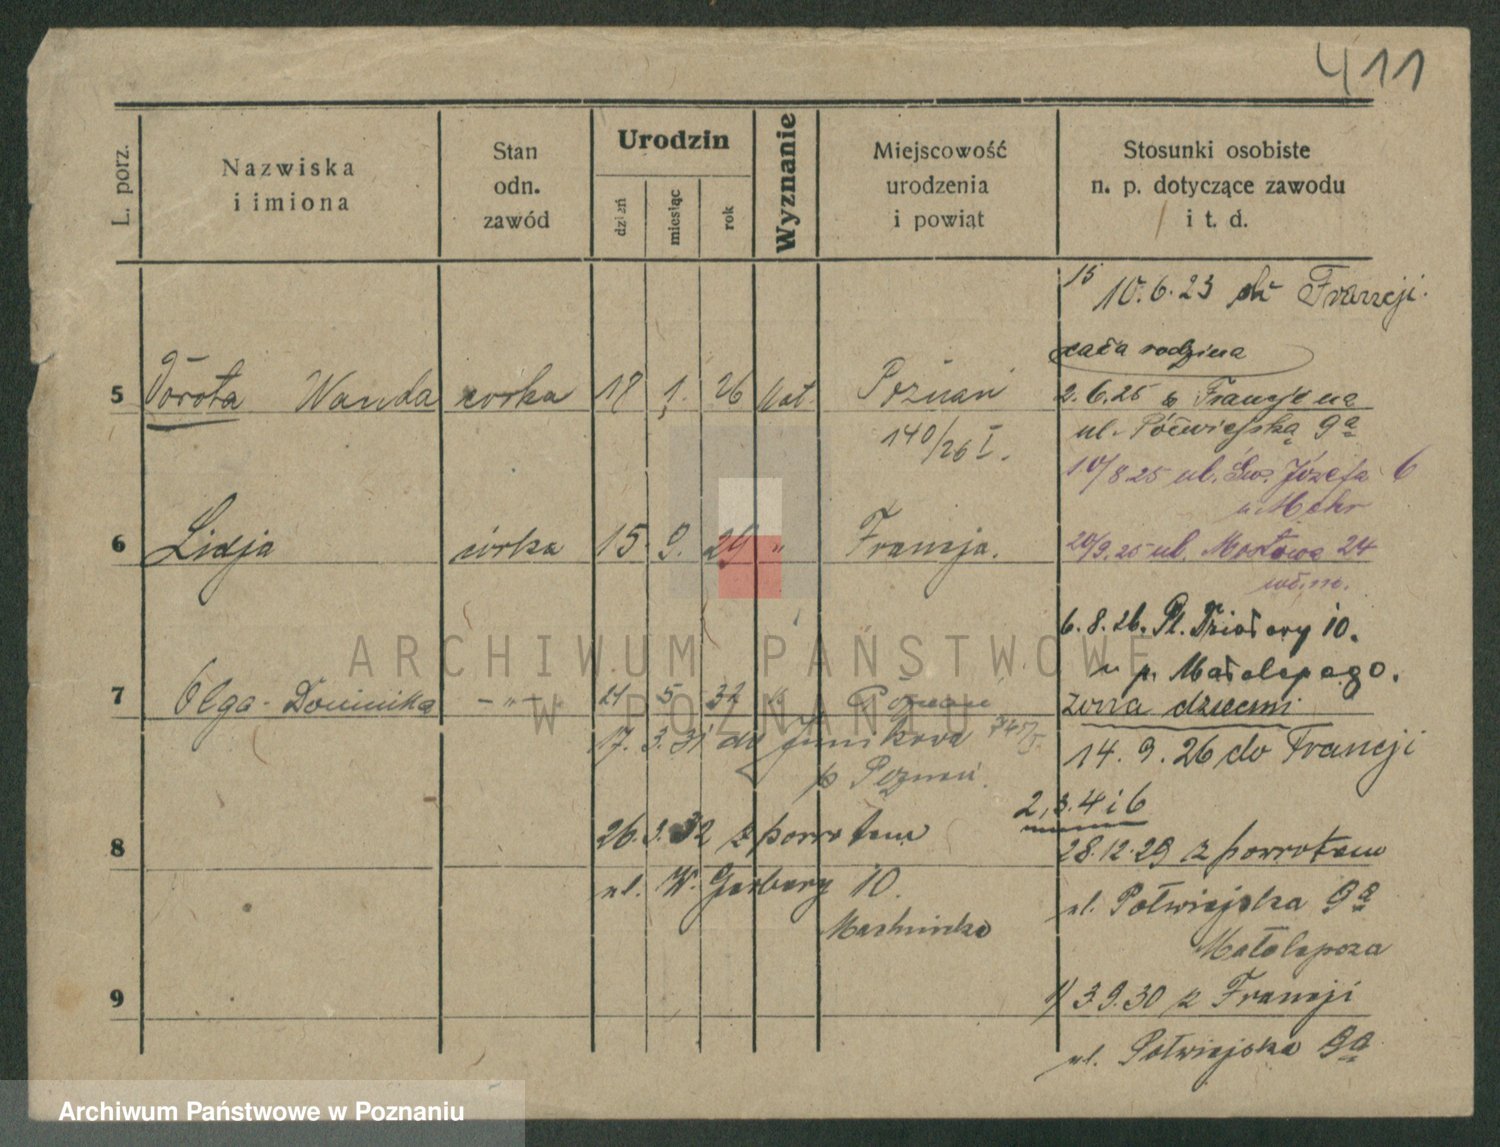 411
L. porz.
Nazwiska
i imiona
Stan
odn.
zawód
Urodzin
dzień
miesiąc
rok
Wyznanie
Miejscowość
urodzenia
i powiąt
Stosunki osobiste
n. p. dotyczące zawodu
i t. d.
15
10.6.23 do Francji.
cała rodzina
5 Dorota Wanda corka 17 1. 26 kat. Poznań
140/26 I.
2.6.25 z Francji na
ul. Półwiejską 9a
10/8.25 ul. Św. Józefa 6
u Mohr
6 Lidja córka 15. 9. 29 " Francja.
20/9.25 ul. Mostowa 24
6.8.26. Pl. 10.
u p. Małolepszego.
7 Olga-Dominika -"- 21 5. 32 " Poznań
żona dziećmi
17. 3. 31 do Junikowa
p Poznań.
14. 9. 26 do Francji
2, 3. 4 i 6
8
26. 3. 32 z powrotem
ul. W. Garbary 10.
28.12.29 z powrotem
ul. Półwiejska 9a
Małolepsza
9
1) 3 9. 30 z Francji
ul. Półwiejska 9a
ARCHIWUM PAŃSTWOWE
W POZNANIU
Archiwum Państwowe w Poznaniu